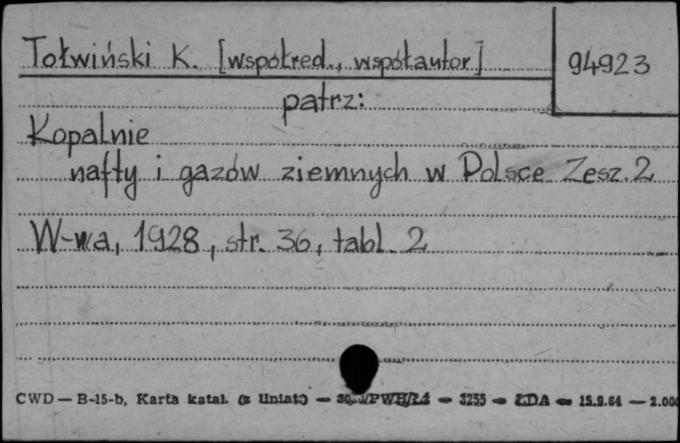 Tołwiński K. [współred., współautor]
94923
patrz:
Kopalnie
nafty i gazów ziemnych w Polsce Zesz. 2
W-wa, 1928, str. 36, tabl. 2
CWD — B-15-b, Karta katal. — 3255 — ŁDA — 15.9.64 — 2.000